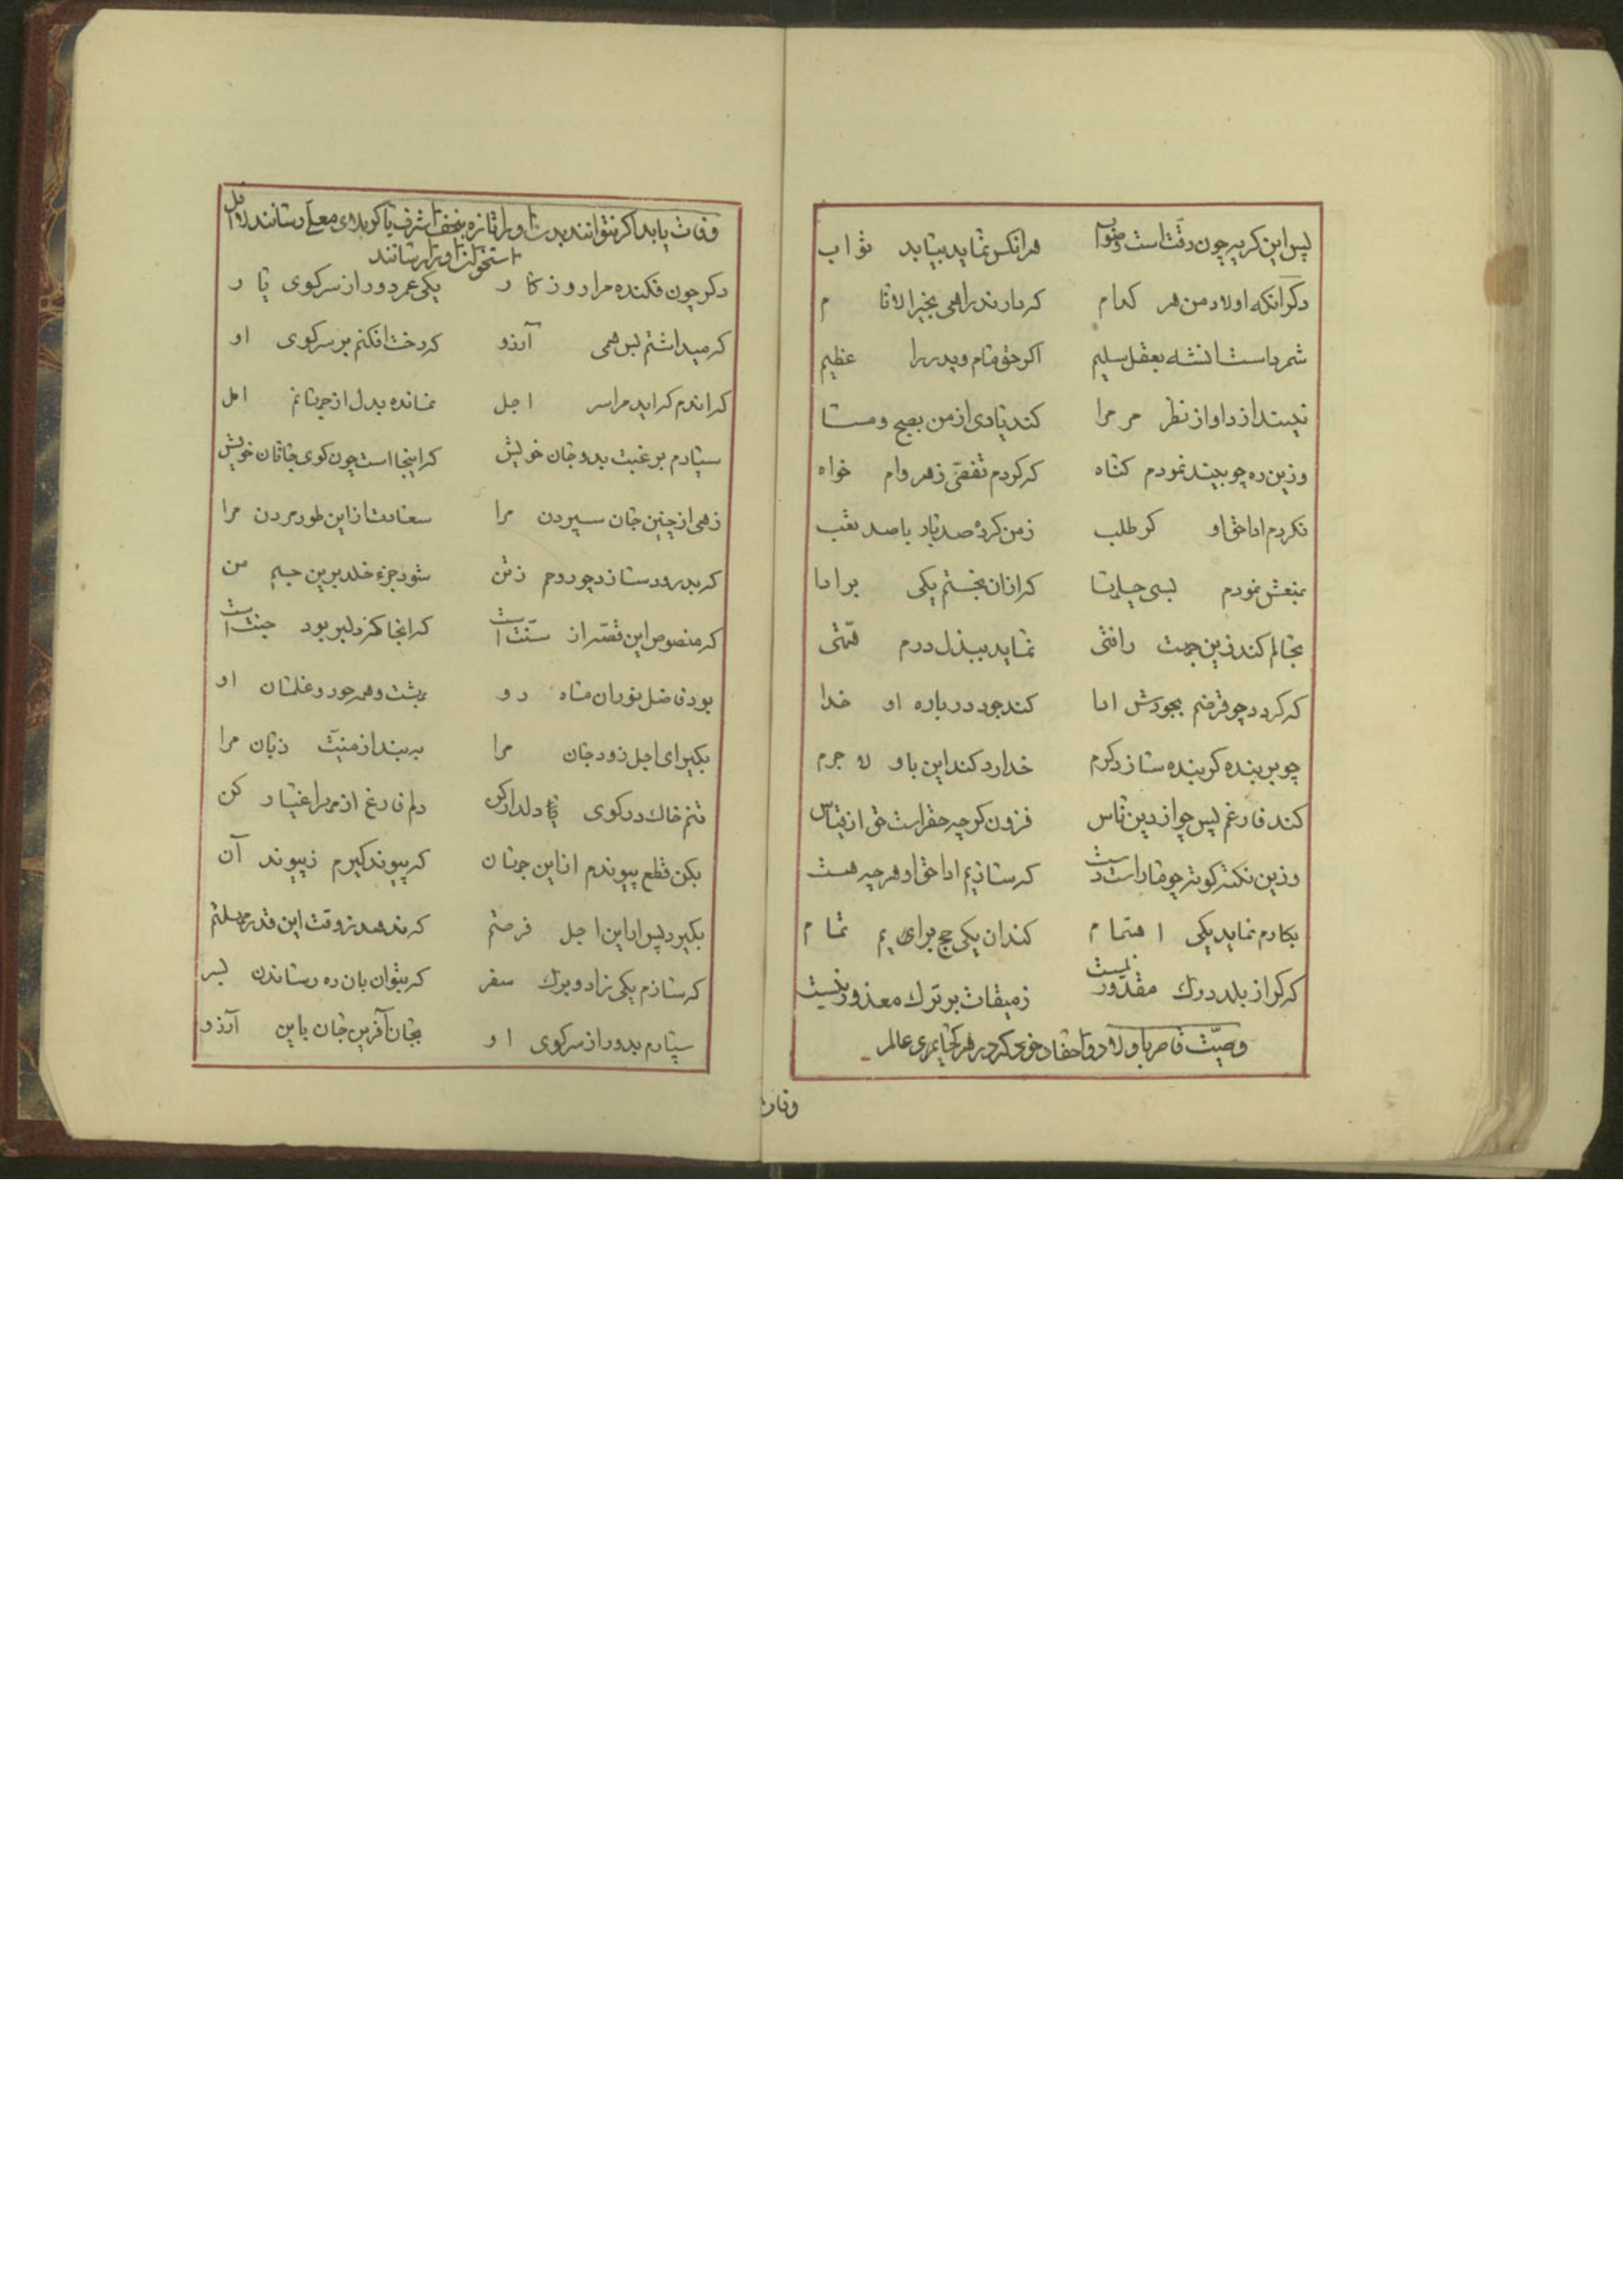 پس این کریه چون رقت است و ثواب هرانکس نماید بیابد ثواب
دکر انکه اولاد من هر کدام که دارند راهی بخیر الانام
شمرداست انشه بعقل سلیم اکر حق مام و پدر را عظیم
نیندازد او از نظر مر مرا کند یادی از من بصبح و مسا
وزین ره چو بیند نمودم کناه که کردم تفصّی زهر وام خواه
نکردم ادا حق او کر طلب ز من کرد صد بار با صد تعب
بمنعش نمودم بسی حیلها کز آن نجستم یکی بر ادا
بحالم کند زین جهت رافتی نماید ببذل درم همّتی
که کردد چو قرضم بجودش ادا کند جود درباره او خدا
چو بر بنده کر بنده سازد کرم خدا رد کند این باو لا جرم
کند فارغم پس چو از دین ناس فزون کرچه حقراست حق از قیاس
وزین نکته کوته چو ما را است دست که سازیم ادا حق او هرچه هست
بکارم نماید یکی اهتمام کند آن یکی حج برایم تمام
که کر از بلد درک مقدور نیست ز میقات بر ترک معذور نیست
وصیّت قاصر باولاد و احفاد خود که در هر کجای عالم
وفات
وفات یابد اکر نتوانند بدن او را تازه بنجف اشرف یا کربلای معلّی رسانند لا اقل
استخوان او را رسانند
دکر چون فکنده مرا روزکار یکی عمر دور از سر کوی یار
که میداشتم بس همی آرزو که رخت افکنم بر سر کوی او
کر اندم که اید مرا سر اجل نمانده بدل از جهانم امل
سپارم برغبت بدو جان خویش که اینجا است چون کوی جانان خویش
زهی از چنین جان سپردن مرا سعادت از این طور مردن مرا
که بدرود سازد چو روحم ز تن شود جزء خلد برین جسم من
که منصوص این قصّه از سنّت است که انجا کز دلبر بود جنت است
بود فاضل نوران ماه رو بهشت و همه حور و غلمان او
بکیر ای اجل زود جان مرا ببند از منیّت زبان مرا
تنم خاک در کوی دلدار کن دلم فارغ از مهر اغیار کن
بکن قطع پیوندم از این جهان که پیوند کیرم ز پیوند آن
بکیرد پس ار این اجل فرصتم که ندهد ز وقت این قدر مهلتم
که سازم یکی زاد و برک سفر که بتوان بان ره رساندن بسر
سپارم بدور از سر کوی او بجان آفرین جان باین آرزو